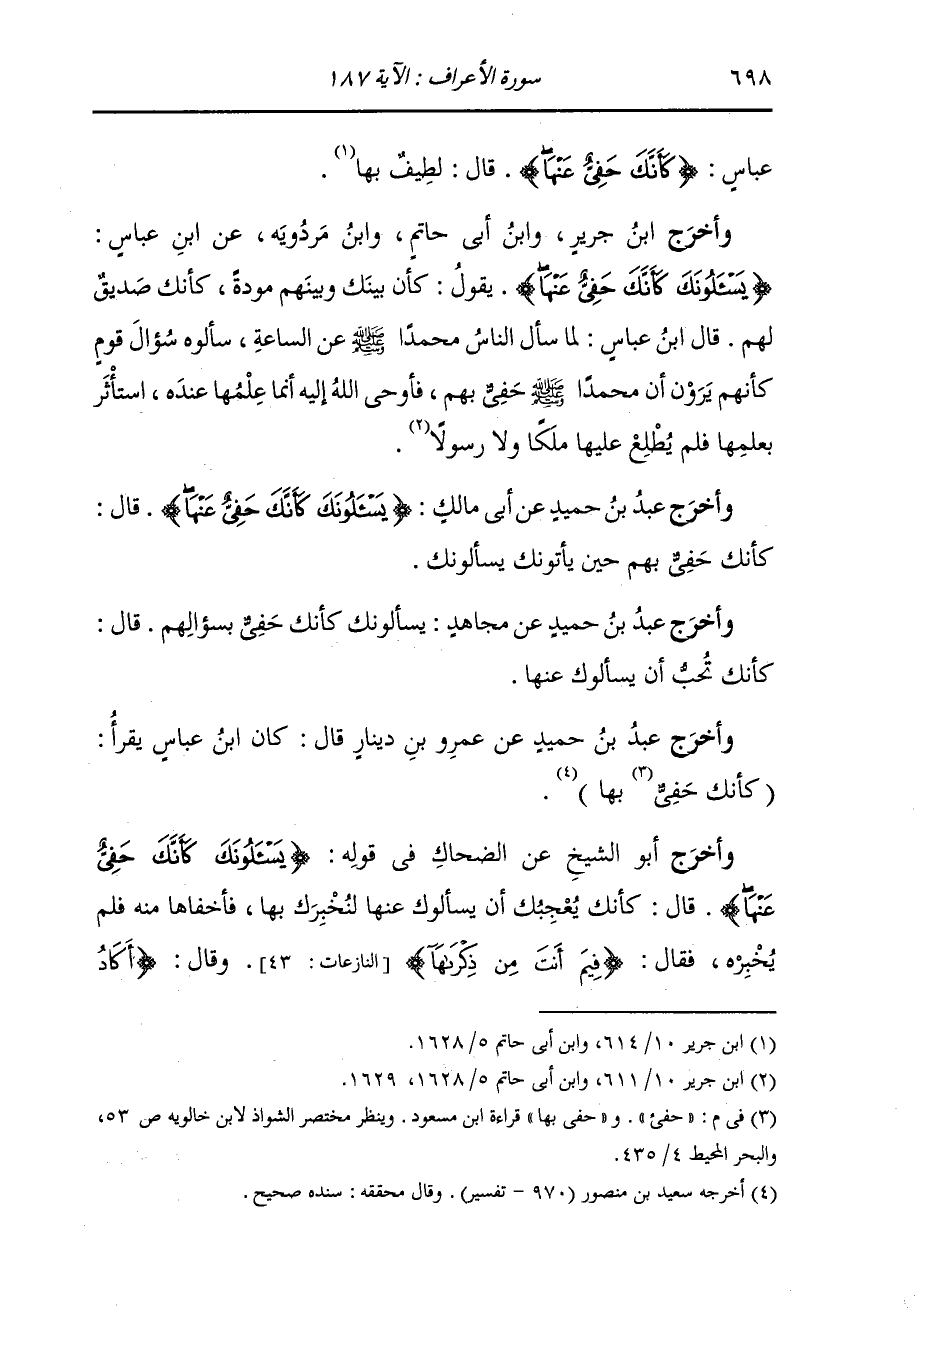 ٦٩٨ سورة الأعراف : الآية ١٨٧
عباسٍ : ﴿كَأَنَّكَ حَفِىٌّ عَنْهَاۖ﴾ . قال : لطِيفٌ بها(١) .
وأخرَج ابنُ جريرٍ ، وابنُ أبى حاتمٍ ، وابنُ مَردُويَه ، عن ابنِ عباسٍ :
﴿يَسْـَٔلُونَكَ كَأَنَّكَ حَفِىٌّ عَنْهَاۖ﴾ . يقولُ : كأن بينَك وبينَهم مودةً ، كأنك صَديقٌ
لهم . قال ابنُ عباسٍ : لما سأل الناسُ محمدًا ﷺ عن الساعةِ ، سألوه سُؤالَ قومٍ
كأنهم يَرَوْن أن محمدًا ﷺ حَفِىٌّ بهم ، فأوحى اللهُ إليه أنما عِلْمُها عندَه ، استأْثَر
بعلمِها فلم يُطْلِعْ عليها ملَكًا ولا رسولًا(٢) .
وأخرَج عبدُ بنُ حميدٍ عن أبى مالكٍ : ﴿يَسْـَٔلُونَكَ كَأَنَّكَ حَفِىٌّ عَنْهَاۖ﴾ . قال :
كأنك حَفِىٌّ بهم حين يأتونك يسألونك .
وأخرَج عبدُ بنُ حميدٍ عن مجاهدٍ : يسألونك كأنك حَفِىٌّ بسؤالِهم . قال :
كأنك تُحبُّ أن يسألوك عنها .
وأخرَج عبدُ بنُ حميدٍ عن عمرِو بنِ دينارٍ قال : كان ابنُ عباسٍ يقرأُ :
( كأنك حَفِىٌّ(٣) بها )(٤) .
وأخرَج أبو الشيخِ عن الضحاكِ فى قولِه : ﴿يَسْـَٔلُونَكَ كَأَنَّكَ حَفِىٌّ
عَنْهَاۖ﴾ . قال : كأنك يُعْجِبُك أن يسألوك عنها لنُخْبِرَك بها ، فأخفاها منه فلم
يُخْبِرْه ، فقال : ﴿فِيمَ أَنتَ مِن ذِكْرَىٰهَآ﴾ [النازعات : ٤٣] . وقال : ﴿أَكَادُ
(١) ابن جرير ١٠/ ٦١٤، وابن أبى حاتم ٥/ ١٦٢٨.
(٢) ابن جرير ١٠/ ٦١١، وابن أبى حاتم ٥/ ١٦٢٨، ١٦٢٩.
(٣) فى م : « حفئ» . و « حفى بها» قراءة ابن مسعود . وينظر مختصر الشواذ لابن خالويه ص ٥٣،
والبحر المحيط ٤/ ٤٣٥.
(٤) أخرجه سعيد بن منصور (٩٧٠ - تفسير) . وقال محققه : سنده صحيح .